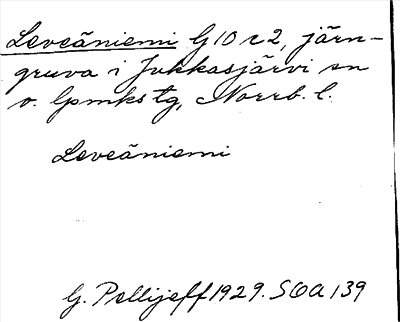 Leveäniemi G10 r2, järn-
gruva i Jukkasjärvi sn
o. lpmkstg, Norrb. l.
Leveäniemi
G. Pellijeff 1929. SOA 139